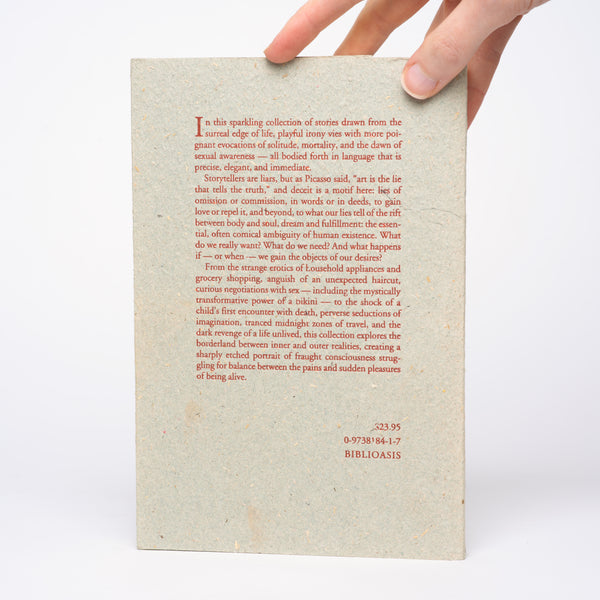 In this sparkling collection of stories drawn from the
surreal edge of life, playful irony vies with more poi-
gnant evocations of solitude, mortality, and the dawn of
sexual awareness — all bodied forth in language that is
precise, elegant, and immediate.
Storytellers are liars, but as Picasso said, "art is the lie
that tells the truth," and deceit is a motif here: lies of
omission or commission, in words or in deeds, to gain
love or repel it, and beyond, to what our lies tell of the rift
between body and soul, dream and fulfillment: the essen-
tial, often comical ambiguity of human existence. What
do we really want? What do we need? And what happens
if — or when — we gain the objects of our desires?
From the strange erotics of household appliances and
grocery shopping, anguish of an unexpected haircut,
curious negotiations with sex — including the mystically
transformative power of a bikini — to the shock of a
child's first encounter with death, perverse seductions of
imagination, tranced midnight zones of travel, and the
dark revenge of a life unlived, this collection explores the
borderland between inner and outer realities, creating a
sharply etched portrait of fraught consciousness strug-
gling for balance between the pains and sudden pleasures
of being alive.
$23.95
0-9738184-1-7
BIBLIOASIS